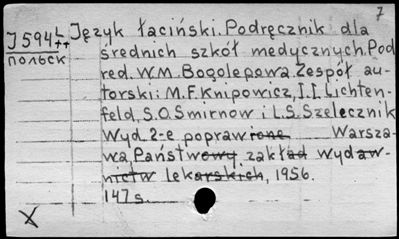 7
J 594 L++ Język łaciński. Podręcznik dla
średnich szkół medycznych. Pod
польск
red. W.M. Bogolepowa. Zespół au-
torski: M.F. Knipowicz, I.I. Lichten-
feld, S.O. Smirnow i L.S. Szelecznik
Wyd. 2-e poprawione Warsza-
wa, Państwowy zakład wydaw-
nictw lekarskich, 1956.
147 s.
X